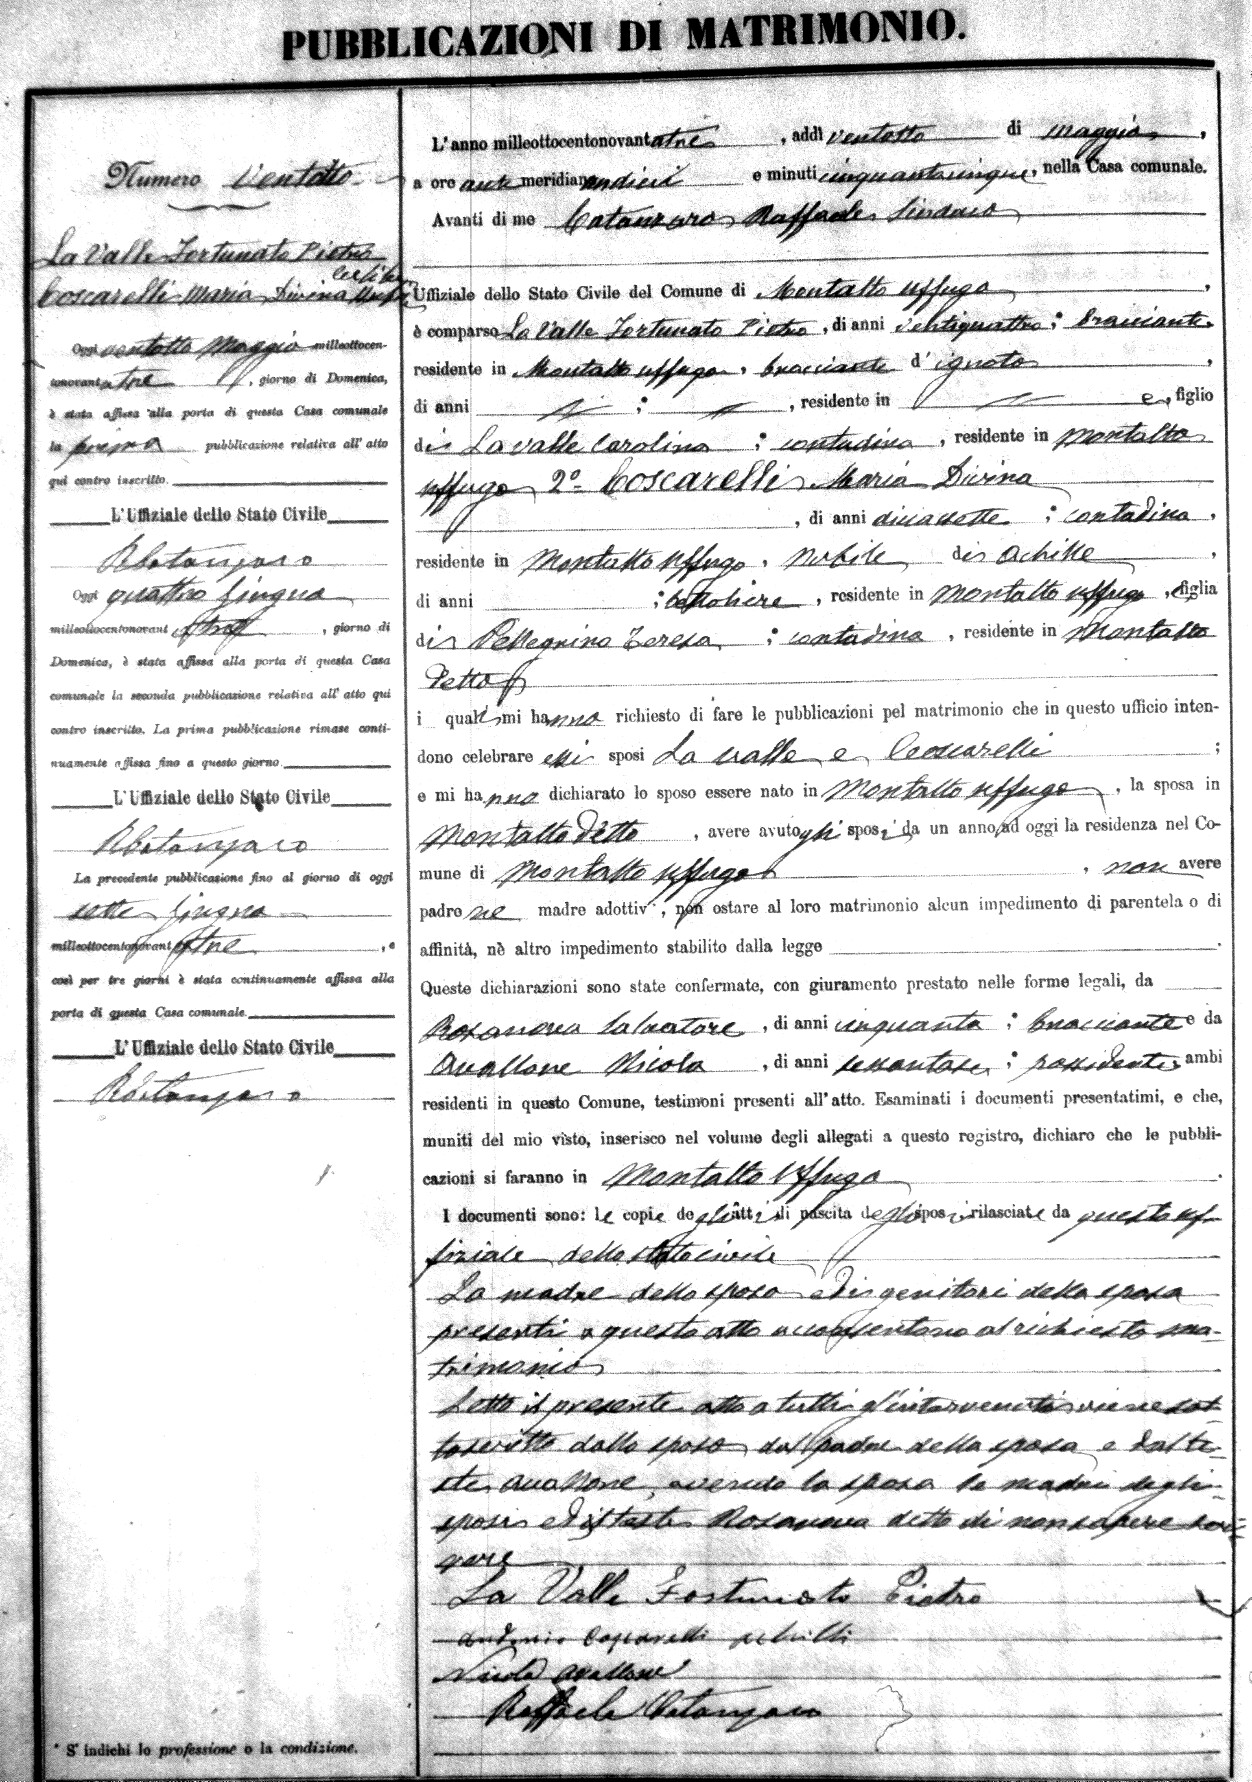 PUBBLICAZIONI DI MATRIMONIO.
Numero Ventotto
La Valle Fortunato Pietro
Coscarelli Maria Divina
Oggi ventotto Maggio milleottocen-
tonovantatre, giorno di Domenica,
è stata affissa alla porta di questa Casa comunale
la prima pubblicazione relativa all' atto
qui contro inscritto.
L'Uffiziale dello Stato Civile
RCatanzaro
Oggi quattro Giugno
milleottocentonovantatre, giorno di
Domenica, è stata affissa alla porta di questa Casa
comunale la seconda pubblicazione relativa all' atto qui
contro inscritto. La prima pubblicazione rimase conti-
nuamente affissa fino a questo giorno.
L'Uffiziale dello Stato Civile
RCatanzaro
La precedente pubblicazione fino al giorno di oggi
sette Giugno
milleottocentonovantatre, e
così per tre giorni è stata continuamente affissa alla
porta di questa Casa comunale.
L'Uffiziale dello Stato Civile
RCatanzaro
* S' indichi lo professione o la condizione.
L'anno milleottocentonovantatre, addì ventotto di Maggio,
a ore ante meridiane undici e minuti cinquantacinque, nella Casa comunale.
Avanti di me Catanzaro Raffaele Sindaco
Uffiziale dello Stato Civile del Comune di Montalto Uffugo,
è comparso La Valle Fortunato Pietro, di anni ventiquattro; bracciante,
residente in Montalto Uffugo, bracciante d' ignoto,
di anni ; , residente in e, figlio
di La Valle Carolina; contadina, residente in Montalto
Uffugo 2° Coscarelli Maria Divina
, di anni diciassette; contadina,
residente in Montalto Uffugo, nubile di Achille,
di anni ; bettoliere, residente in Montalto Uffugo, figlia
di Pellegrino Teresa; contadina, residente in Montalto
Detto
i quali mi hanno richiesto di fare le pubblicazioni pel matrimonio che in questo ufficio inten-
dono celebrare essi sposi La Valle e Coscarelli;
e mi hanno dichiarato lo sposo essere nato in Montalto Uffugo, la sposa in
Montalto Detto, avere avuto gli sposi da un anno ad oggi la residenza nel Co-
mune di Montalto Uffugo, non avere
padre ne madre adottiv', non ostare al loro matrimonio alcun impedimento di parentela o di
affinità, nè altro impedimento stabilito dalla legge.
Queste dichiarazioni sono state confermate, con giuramento prestato nelle forme legali, da
Rosanova Salvatore, di anni cinquanta; bracciante e da
Avallone Nicola, di anni sessantasei; possidente ambi
residenti in questo Comune, testimoni presenti all'atto. Esaminati i documenti presentatimi, e che,
muniti del mio visto, inserisco nel volume degli allegati a questo registro, dichiaro che le pubbli-
cazioni si faranno in Montalto Uffugo.
I documenti sono: le copie degli atti di nascita degli sposi rilasciate da questo uf-
fiziale dello stato civile
La madre dello sposo ed i genitori della sposa
presenti a questo atto acconsentono al richiesto ma-
trimonio
Letto il presente atto a tutti gl'intervenuti viene sot-
toscritto dallo sposo, dal padre della sposa e dal te-
ste Avallone, avendo la sposa le madri degli
sposi ed il teste Rosanova detto di non sapere scri-
vere
La Valle Fortunato Pietro
Antonio Coscarelli Achilli
Nicola Avallone
Raffaele Catanzaro